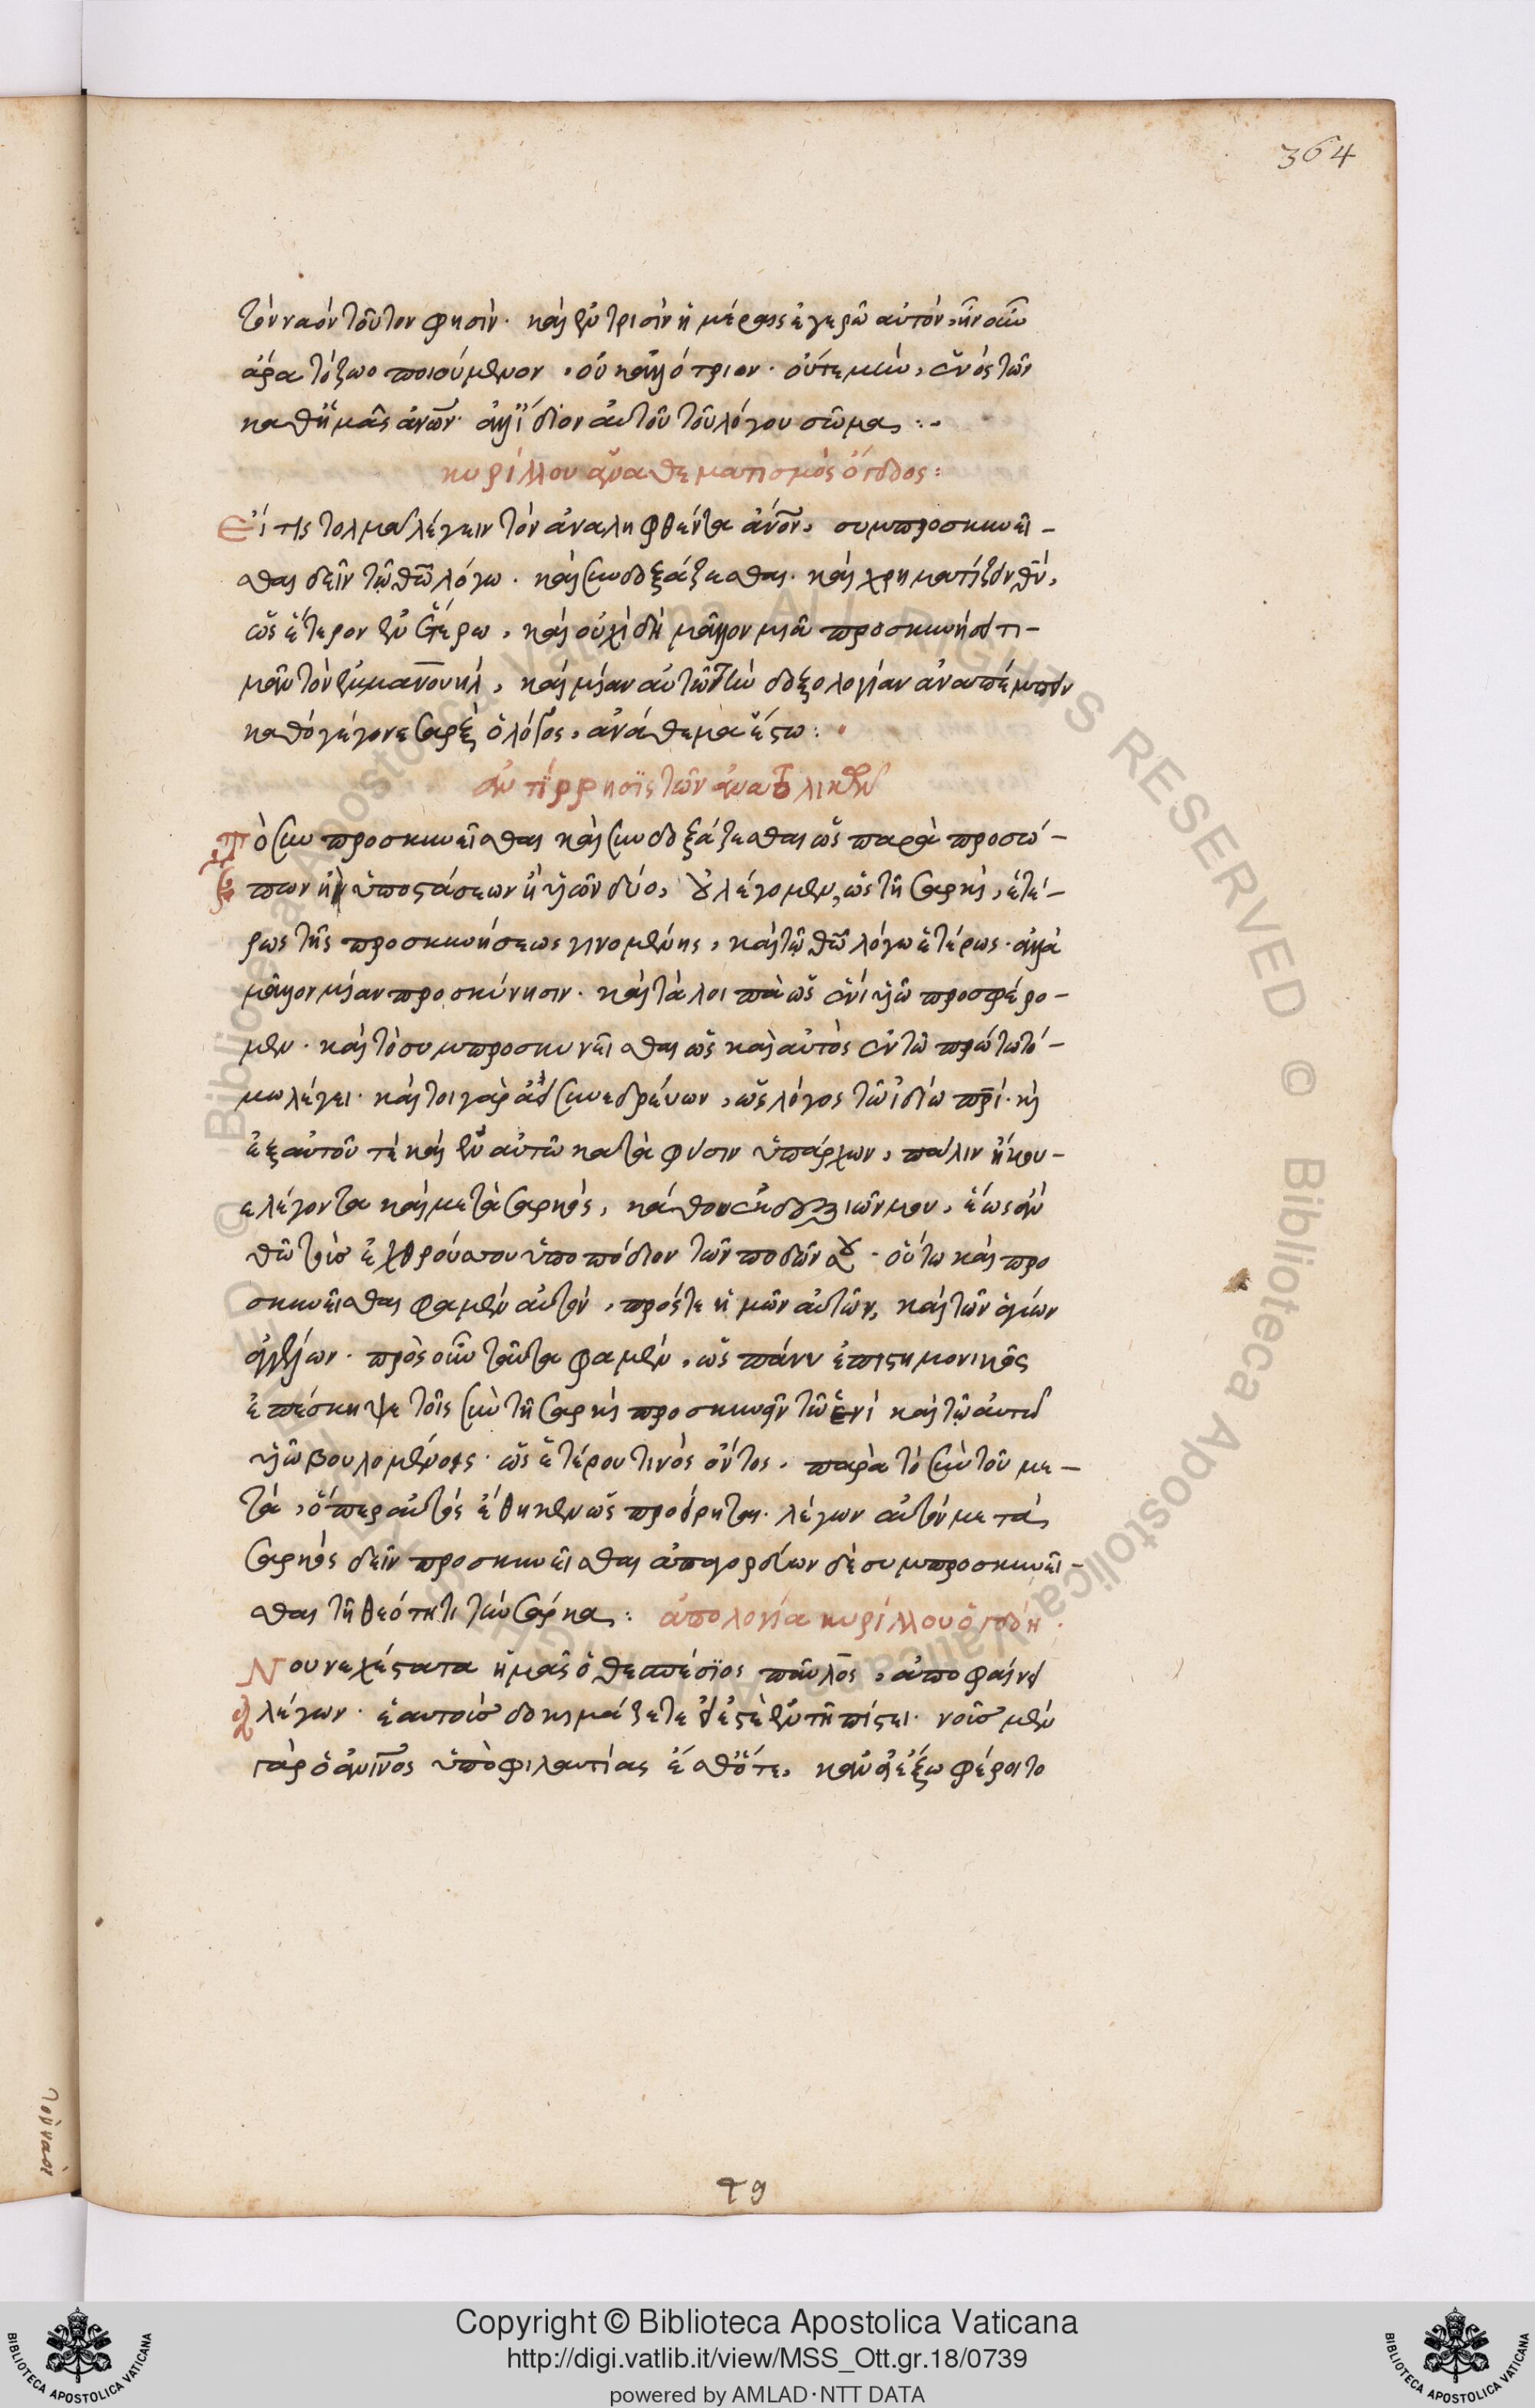 364
τὸν ναὸν τοῦτον φησὶν· καὶ ἐν τρισὶν ἡμέραις ἐγερῶ αὐτόν, ἦν οὖν
ἄρα τὸ ζωοποιούμενον, οὐκ ἀλλότριον· οὔτε μὴν, ἑνὸς τῶν
καθ' ἡμᾶς ἀνων· ἀλλ' ἴδιον αὐτοῦ τοῦ λόγου σῶμα:·
κυρίλλου ἀναθεματισμὸς ὄγδοος:
Εἴ τις τολμᾶ λέγειν τὸν ἀναληφθέντα ἄνον, συμπροσκυνεῖ-
σθαι δεῖν τῷ θῶ λόγω· καὶ συνδοξάζεσθαι· καὶ χρηματίζειν θν,
ὡς ἕτερον ἐν ἑτέρω, καὶ οὐχὶ δὴ μᾶλλον μιᾶ προσκυνήσει τι-
μᾶν τὸν ἐμμανουὴλ, καὶ μίαν αὐτῶ τὴν δοξολογίαν ἀναπέμπειν
καθὸ γέγονε σαρξ ὁ λόγος, ἀνάθεμα ἔστω:·
ἀντίρρησϊς τῶν ἀνατολικῶν
Τὸ συνπροσκυνεῖσθαι καὶ συνδοξάζεσθαι ὡς παρὰ προσώ-
πων ἢ ὑποστάσεων ἢ υἱῶν δύο, οὐ λέγομεν, ὡς τῆ σαρκὶ, ἑτέ-
ρως τῆς προσκυνήσεως γινομένης, καὶ τῷ θῶ λόγω ἑτέρως· ἀλλὰ
μᾶλλον μίαν προσκύνησιν· καὶ τὰ λοιπὰ ὡς ἑνὶ υἱῶ προσφέρο-
μεν· καὶ τὸ συμπροσκυνεῖσθαι ὡς καὶ αὐτὸς ἐν τῶ πρώτω τό-
μω λέγει· καίτοι γὰρ ἀεὶ συνεδρεύων, ὡς λόγος τῶ ἰδίω πρί· καὶ
ἐξ αὐτοῦ τὲ καὶ ἐν αὐτῶ κατὰ φύσιν ὑπάρχων, πάλιν ἤκου-
ε λέγοντα καὶ μετὰ σαρκός, κάθου ἐκ δεξιῶν μου, ἕως ἂν
θῶ τοὺς ἐχθρούς σου ὑποπόδιον τῶν ποδῶν σου· οὕτω καὶ προ
σκυνεῖσθαι φαμὲν αὐτόν, πρός τε ἡμῶν αὐτῶν, καὶ τῶν ἁγίων
ἀγγέλων· πρὸς οὖν ταῦτα φαμὲν, ὡς πάνυ ἐπιστημονικῶς
ἐπέσκηψε τοῖς σὺν τῆ σαρκὶ προσκυνεῖν τῶ ἑνὶ καὶ τῷ αὐτῶ
υἱῶ βουλομένοις· ὡς ἑτέρου τινὸς ὄντος, παρὰ τὸ σὺν τοῦ με-
τά, ὅπερ αὐτὸς ἔθηκεν ὡς προείρηται· λέγων αὐτὸν μετὰ
σαρκὸς δεῖν προσκυνεῖσθαι ἀπαγορεύων δὲ συμπροσκυνεῖ-
σθαι τῆ θεότητι τὴν σάρκα: ἀπολογία κυρίλλου ὀγδόη·
Νουνεχέστατα ἡμᾶς ὁ θεσπέσϊος παῦλος, ἀποφαίνει
λέγων· ἑαυτοὺς δοκιμάζετε εἰ ἐστὲ ἐν τῆ πίστει· νοῦς μὲν
γὰρ ὁ ἀνινος ὑπὸ φιλαυτίας ἔσθ' ὅτε, κἂν εἰ ἔξω φέροιτο
τ9
Copyright © Biblioteca Apostolica Vaticana
http://digi.vatlib.it/view/MSS_Ott.gr.18/0739
powered by AMLAD·NTT DATA